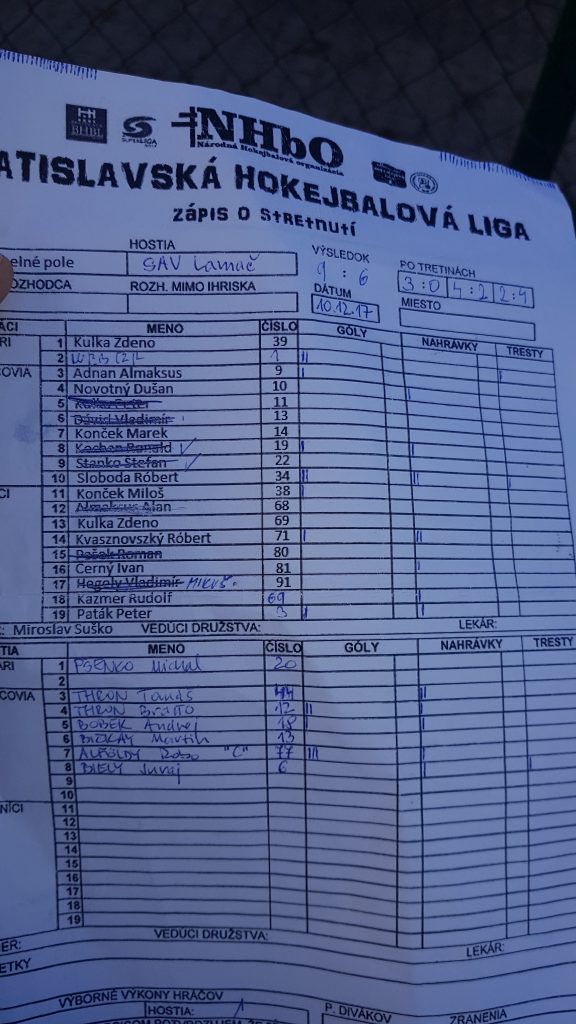 BHBL
SUPERLIGA
NHbO
Národná Hokejbalová organizácia
ATISLAVSKÁ HOKEJBALOVÁ LIGA
ZÁPIS O STRETNUTÍ
HOSTIA
VÝSLEDOK
PO TRETINÁCH
elné pole
SAV Lamač
9 : 6
3:0 4:2 2:4
OZHODCA
ROZH. MIMO IHRISKA
DÁTUM
MIESTO
10.12.17
ÁCI MENO ČÍSLO GÓLY NAHRÁVKY TRESTY
ÁRI 1 Kulka Zdeno 39
2 1
COVIA 3 Adnan Almaksus 9
4 Novotný Dušan 10
5 Kulka Peter 11
6 Dávid Vladimír 13
7 Konček Marek 14
8 Ronald 19
9 Stanko Štefan 22
10 Sloboda Róbert 34
CI 11 Konček Miloš 38
12 Almaksus Alan 68
13 Kulka Zdeno 69
14 Kvasznovszký Róbert 71
15 Pešek Roman 80
16 Černý Ivan 81
17 Hegely Vladimír 91
18 Kazmer Rudolf 69
19 Paták Peter 3
: Miroslav Suško VEDÚCI DRUŽSTVA: LEKÁR:
TIA MENO ČÍSLO GÓLY NAHRÁVKY TRESTY
ÁRI 1 PSENKO Michal 20
2
COVIA 3 THRON Tomáš 44
4 THRON 12
5 BOBEK Andrej 18
6 Martin 13
7 ALFÖLDY Robo "C" 77
8 BIELY Juraj 6
9
10
NÍCI 11
12
13
14
15
16
17
18
19
ÉR: VEDÚCI DRUŽSTVA: LEKÁR:
ETKY
VÝBORNÉ VÝKONY HRÁČOV
HOSTIA:
P. DIVÁKOV
ZRANENIA